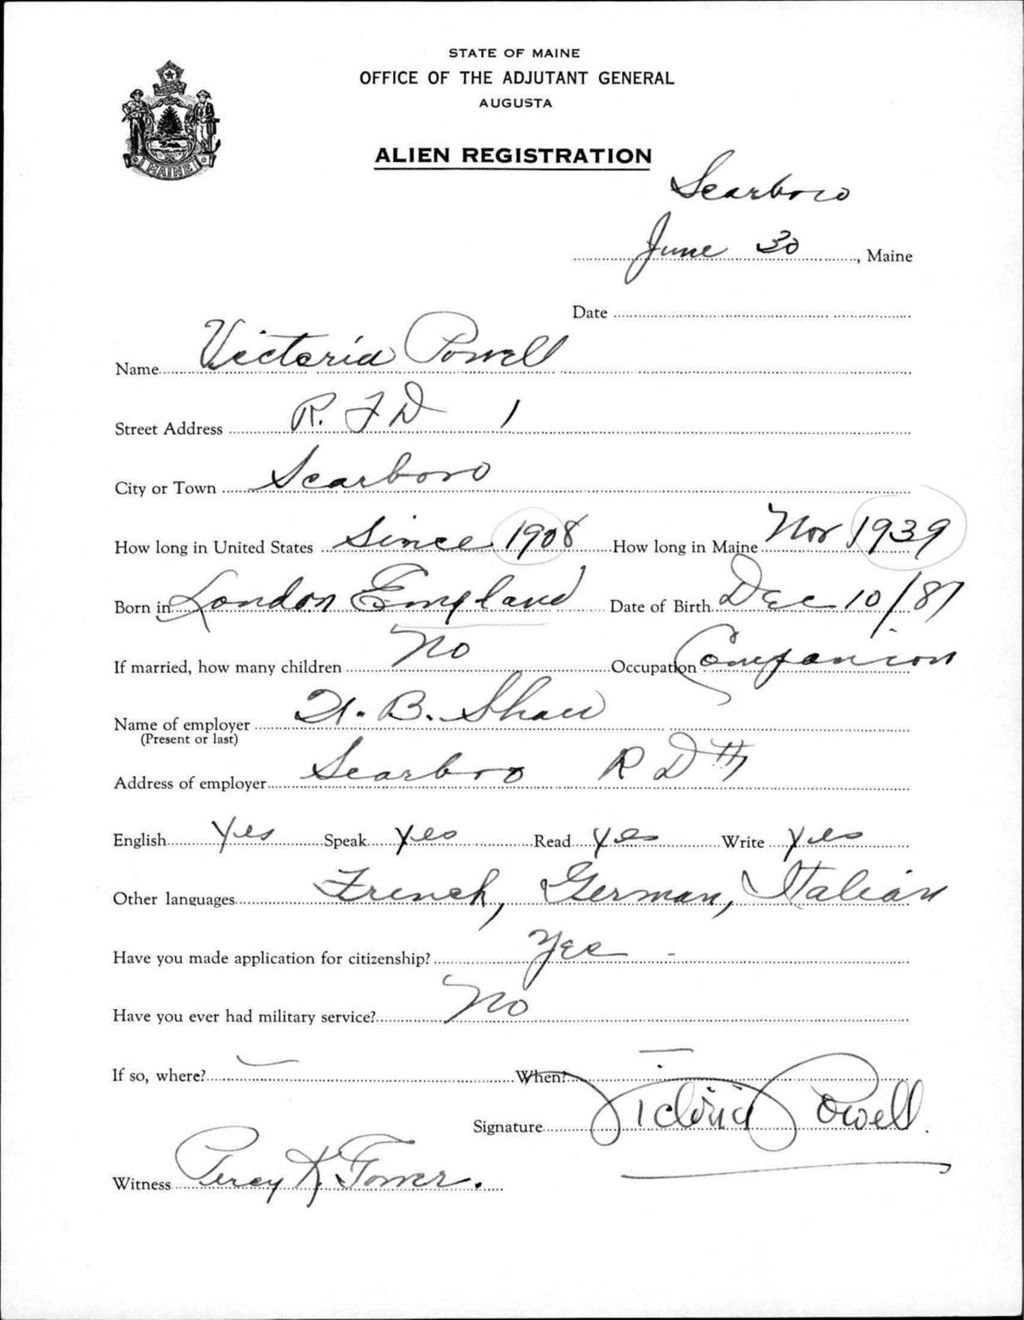 STATE OF MAINE
OFFICE OF THE ADJUTANT GENERAL
AUGUSTA
ALIEN REGISTRATION
MAINE
Scarboro
June 30, Maine
Date
Name Victoria Powell
Street Address R. F D 1
City or Town Scarboro
How long in United States Since 1908 How long in Maine Nov 1939
Born in London England Date of Birth Dec 10/87
If married, how many children No Occupation Companion
Name of employer B. Shaw
(Present or last)
Address of employer Scarboro R D
English Yes Speak Yes Read Yes Write Yes
Other languages French, German, Italian
Have you made application for citizenship? Yes -
Have you ever had military service? No
If so, where? — When? —
Signature Victoria Powell.
Witness Percy K